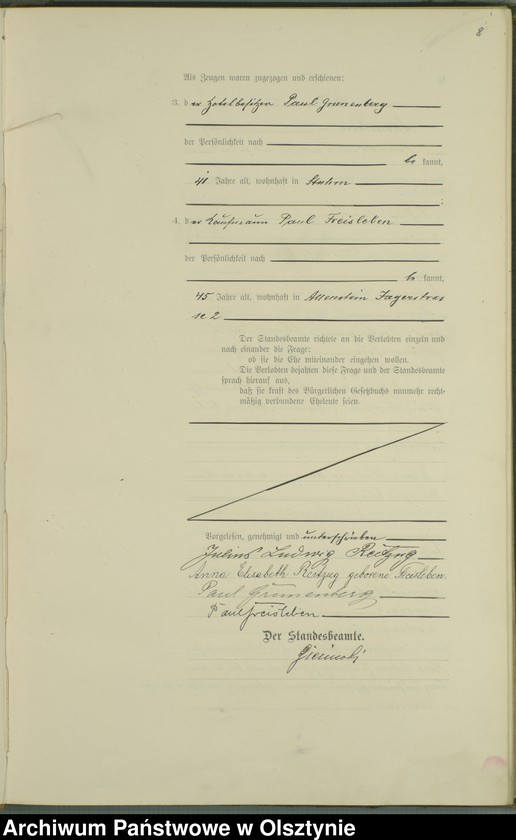 8
Als Zeugen waren zugezogen und erschienen:
3. der Hotelbesitzer Paul Grunenberg
der Persönlichkeit nach
bekannt,
41 Jahre alt, wohnhaft in Stuhm
;
4. der Kaufmann Paul Freisleben
der Persönlichkeit nach
bekannt,
45 Jahre alt, wohnhaft in Allenstein Jägerstras
se 2
Der Standesbeamte richtete an die Verlobten einzeln und
nach einander die Frage:
ob sie die Ehe miteinander eingehen wollen.
Die Verlobten bejahten diese Frage und der Standesbeamte
sprach hierauf aus,
daß sie kraft des Bürgerlichen Gesetzbuchs nunmehr recht-
mäßig verbundene Eheleute seien.
Vorgelesen, genehmigt und unterschrieben
Julius Ludwig Reitzug
Anna Elisabeth Reitzug geborene Freisleben
Paul Grunenberg
Paul Freisleben
Der Standesbeamte.
Archiwum Państwowe w Olsztynie